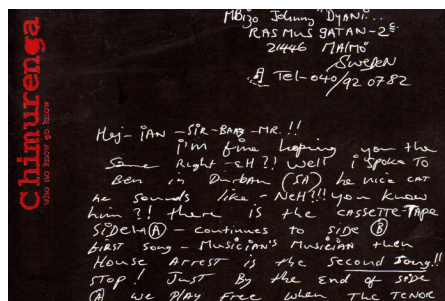 Chimurenga
who no know go know
MBizo Johnny "Dyani...
RASMUSGATAN-2c
21446 MALMÖ
SWEDEN
Tel-040/920782
Hej - iAN - SiR - BAAS - MR. !!
i'm fine hoping you the
Same Right - EH?! Well i spoke TO
Ben in Durban (SA) he nice cat
he sounds like - NeH?!! you know
him?! there IS the CASSETTE-TAPE
SiDE A - continues to side B
first song - Musician's Musician then
House Arrest is the second song!!
STOP! Just By the End of side
A we PLAY Free when The TENOR